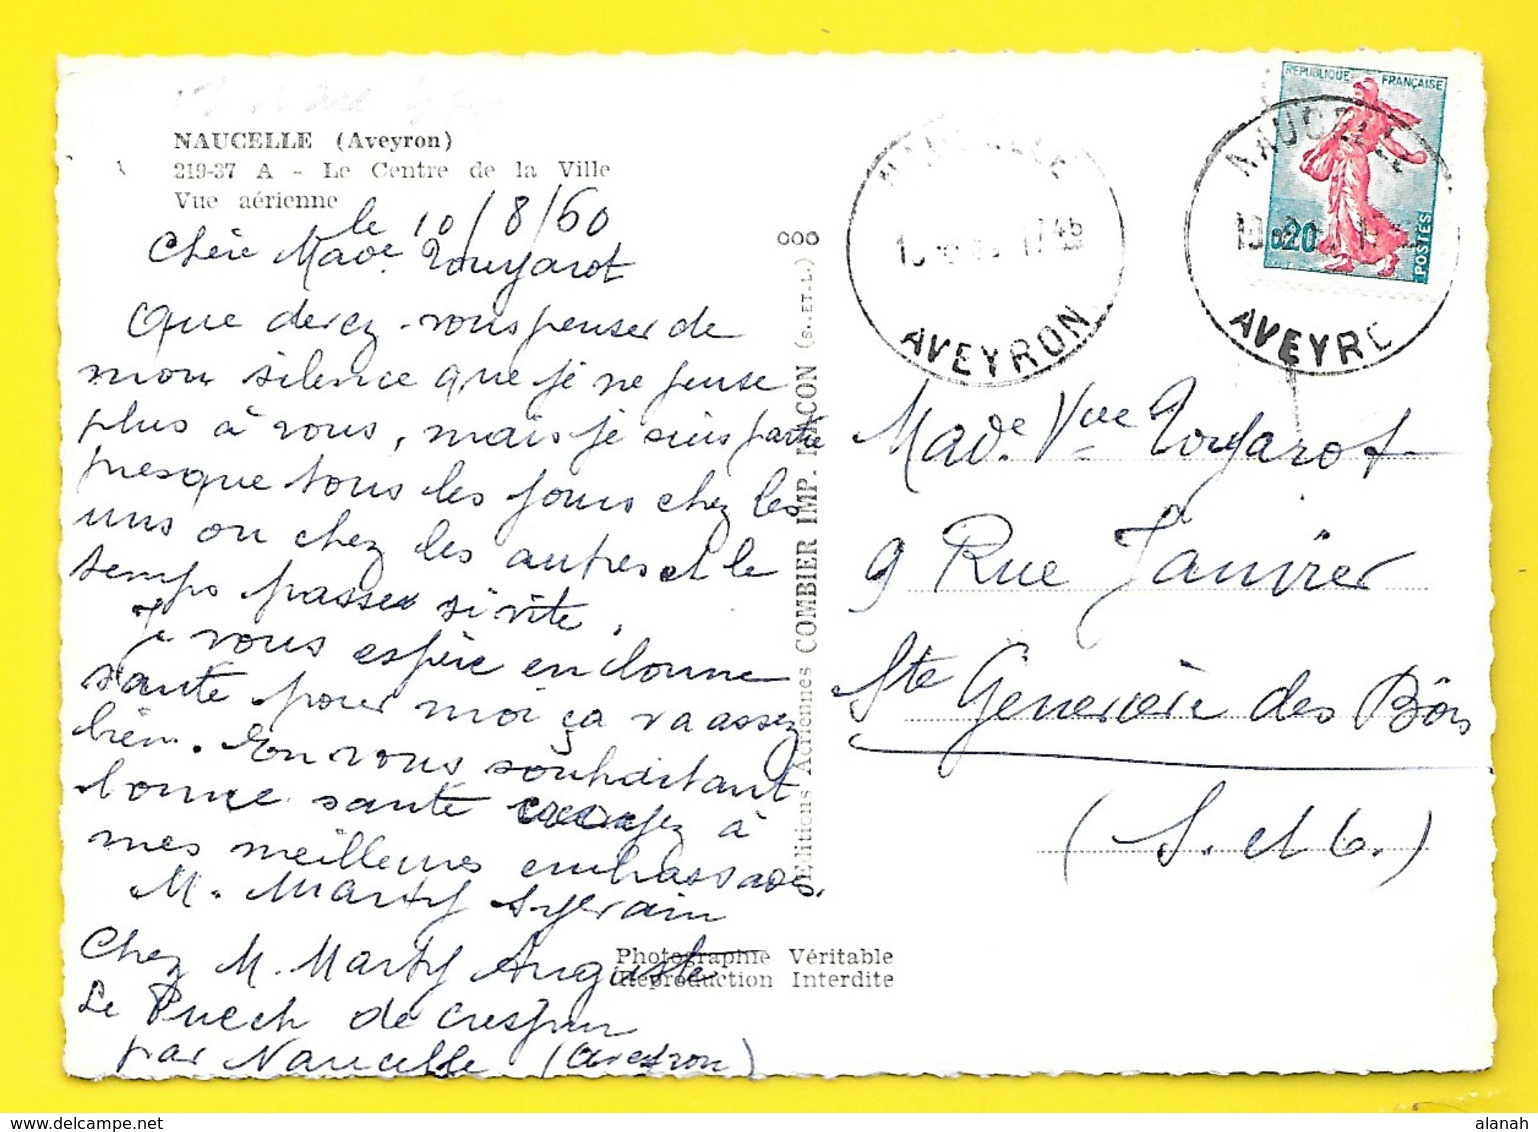 NAUCELLE (Aveyron)
219-37 A - Le Centre de la Ville
Vue aérienne
le 10/8/60
Chère Made Touyarot
Que derez-vous penser de
mon silence que je ne pense
plus à vous, mais je suis partie
presque tous les jours chez les
uns ou chez les autres et le
temps passe si vite.
Je vous espère en bonne
santé pour moi ça va assez
bien. En vous souhaitant
bonne santé croyez à
mes meilleures embrassades.
M. Marty Sylvain
Chez M. Marty Auguste
Le Puech de Crespin
par Naucelle (Aveyron)
Editions Aériennes COMBIER IMP. MACON (S.-ET-L.)
Photographie Véritable
Reproduction Interdite
NAUCELLE
17 45
AVEYRON
REPUBLIQUE FRANÇAISE
0,20
POSTES
NAUCELLE
AVEYRO
Made Vve Touyarot
9 Rue Janvier
Ste Geneviève des Bois
(S. et O.)
alanah